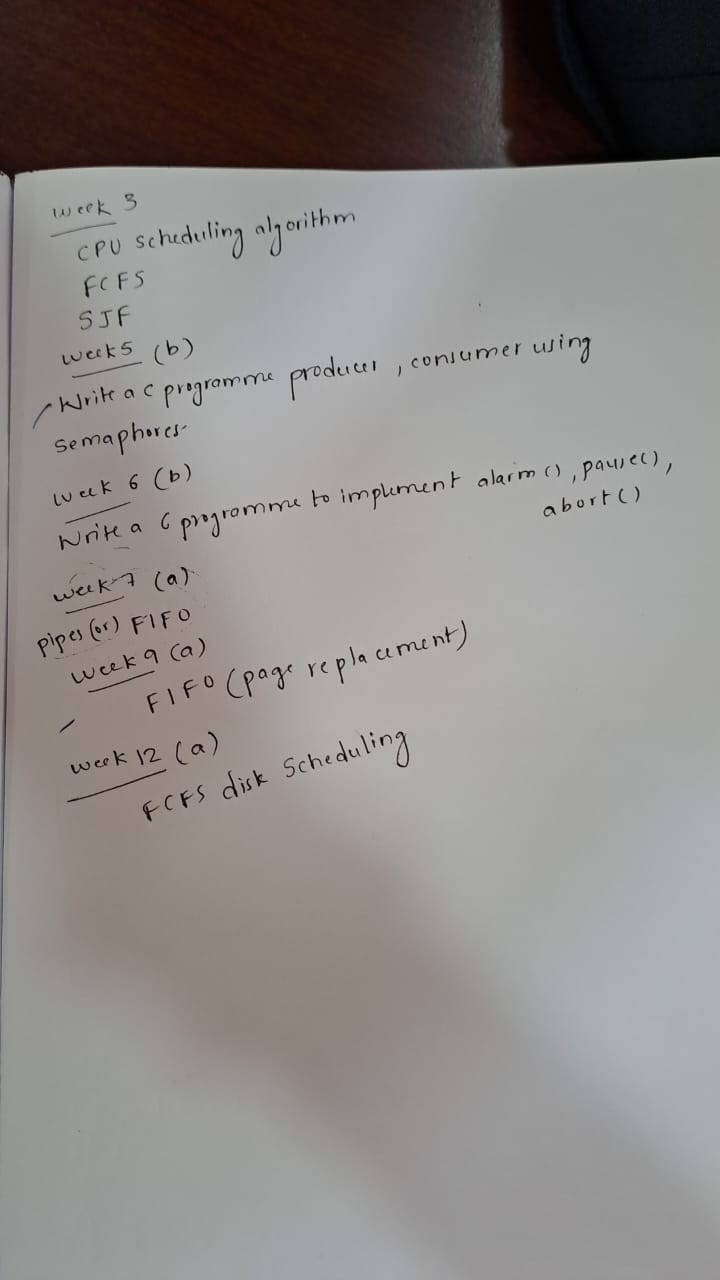 Week 3
CPU scheduling algorithm
FCFS
SJF
week5 (b)
Write a c programme producer, consumer using
semaphores
week 6 (b)
Write a C programme to implement alarm(), pause(),
abort()
week-7 (a)
pipes (or) FIFO
week 9 (a)
FIFO (page replacement)
week 12 (a)
FCFS disk Scheduling